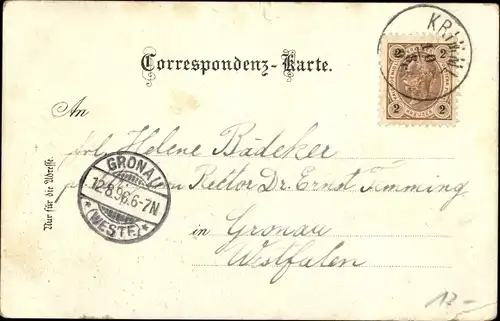 KRIMML
2 2
2 2
Correspondenz-Karte.
An
Frl. Helene Bädeker
Rector Dr. Ernst
in Gronau
Westfalen
Nur für die Adresse.
GRONAU
12.8.96.6-7N
* (WESTF.) *
12-